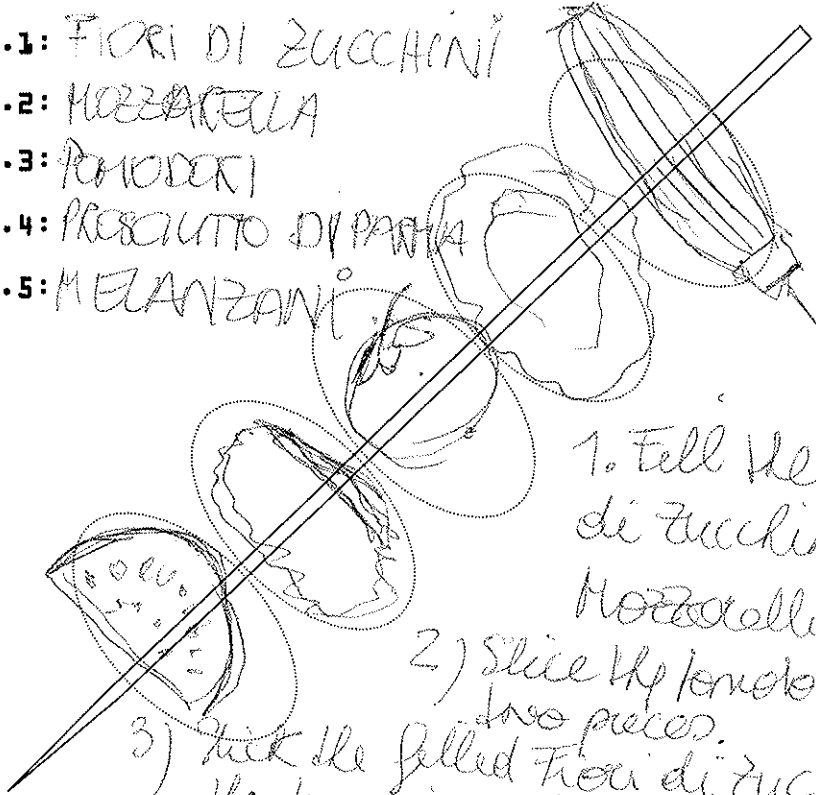 .1: FIORI DI ZUCCHINI
.2: MOZZARELLA
.3: POMODORI
.4: PROSCIUTTO DI PARMA
.5: MELANZANI
1. Fill the
di Zucchi
Mozzarella
2) Slice the
two pieces.
3) Stick the filled Fiori di Zuc